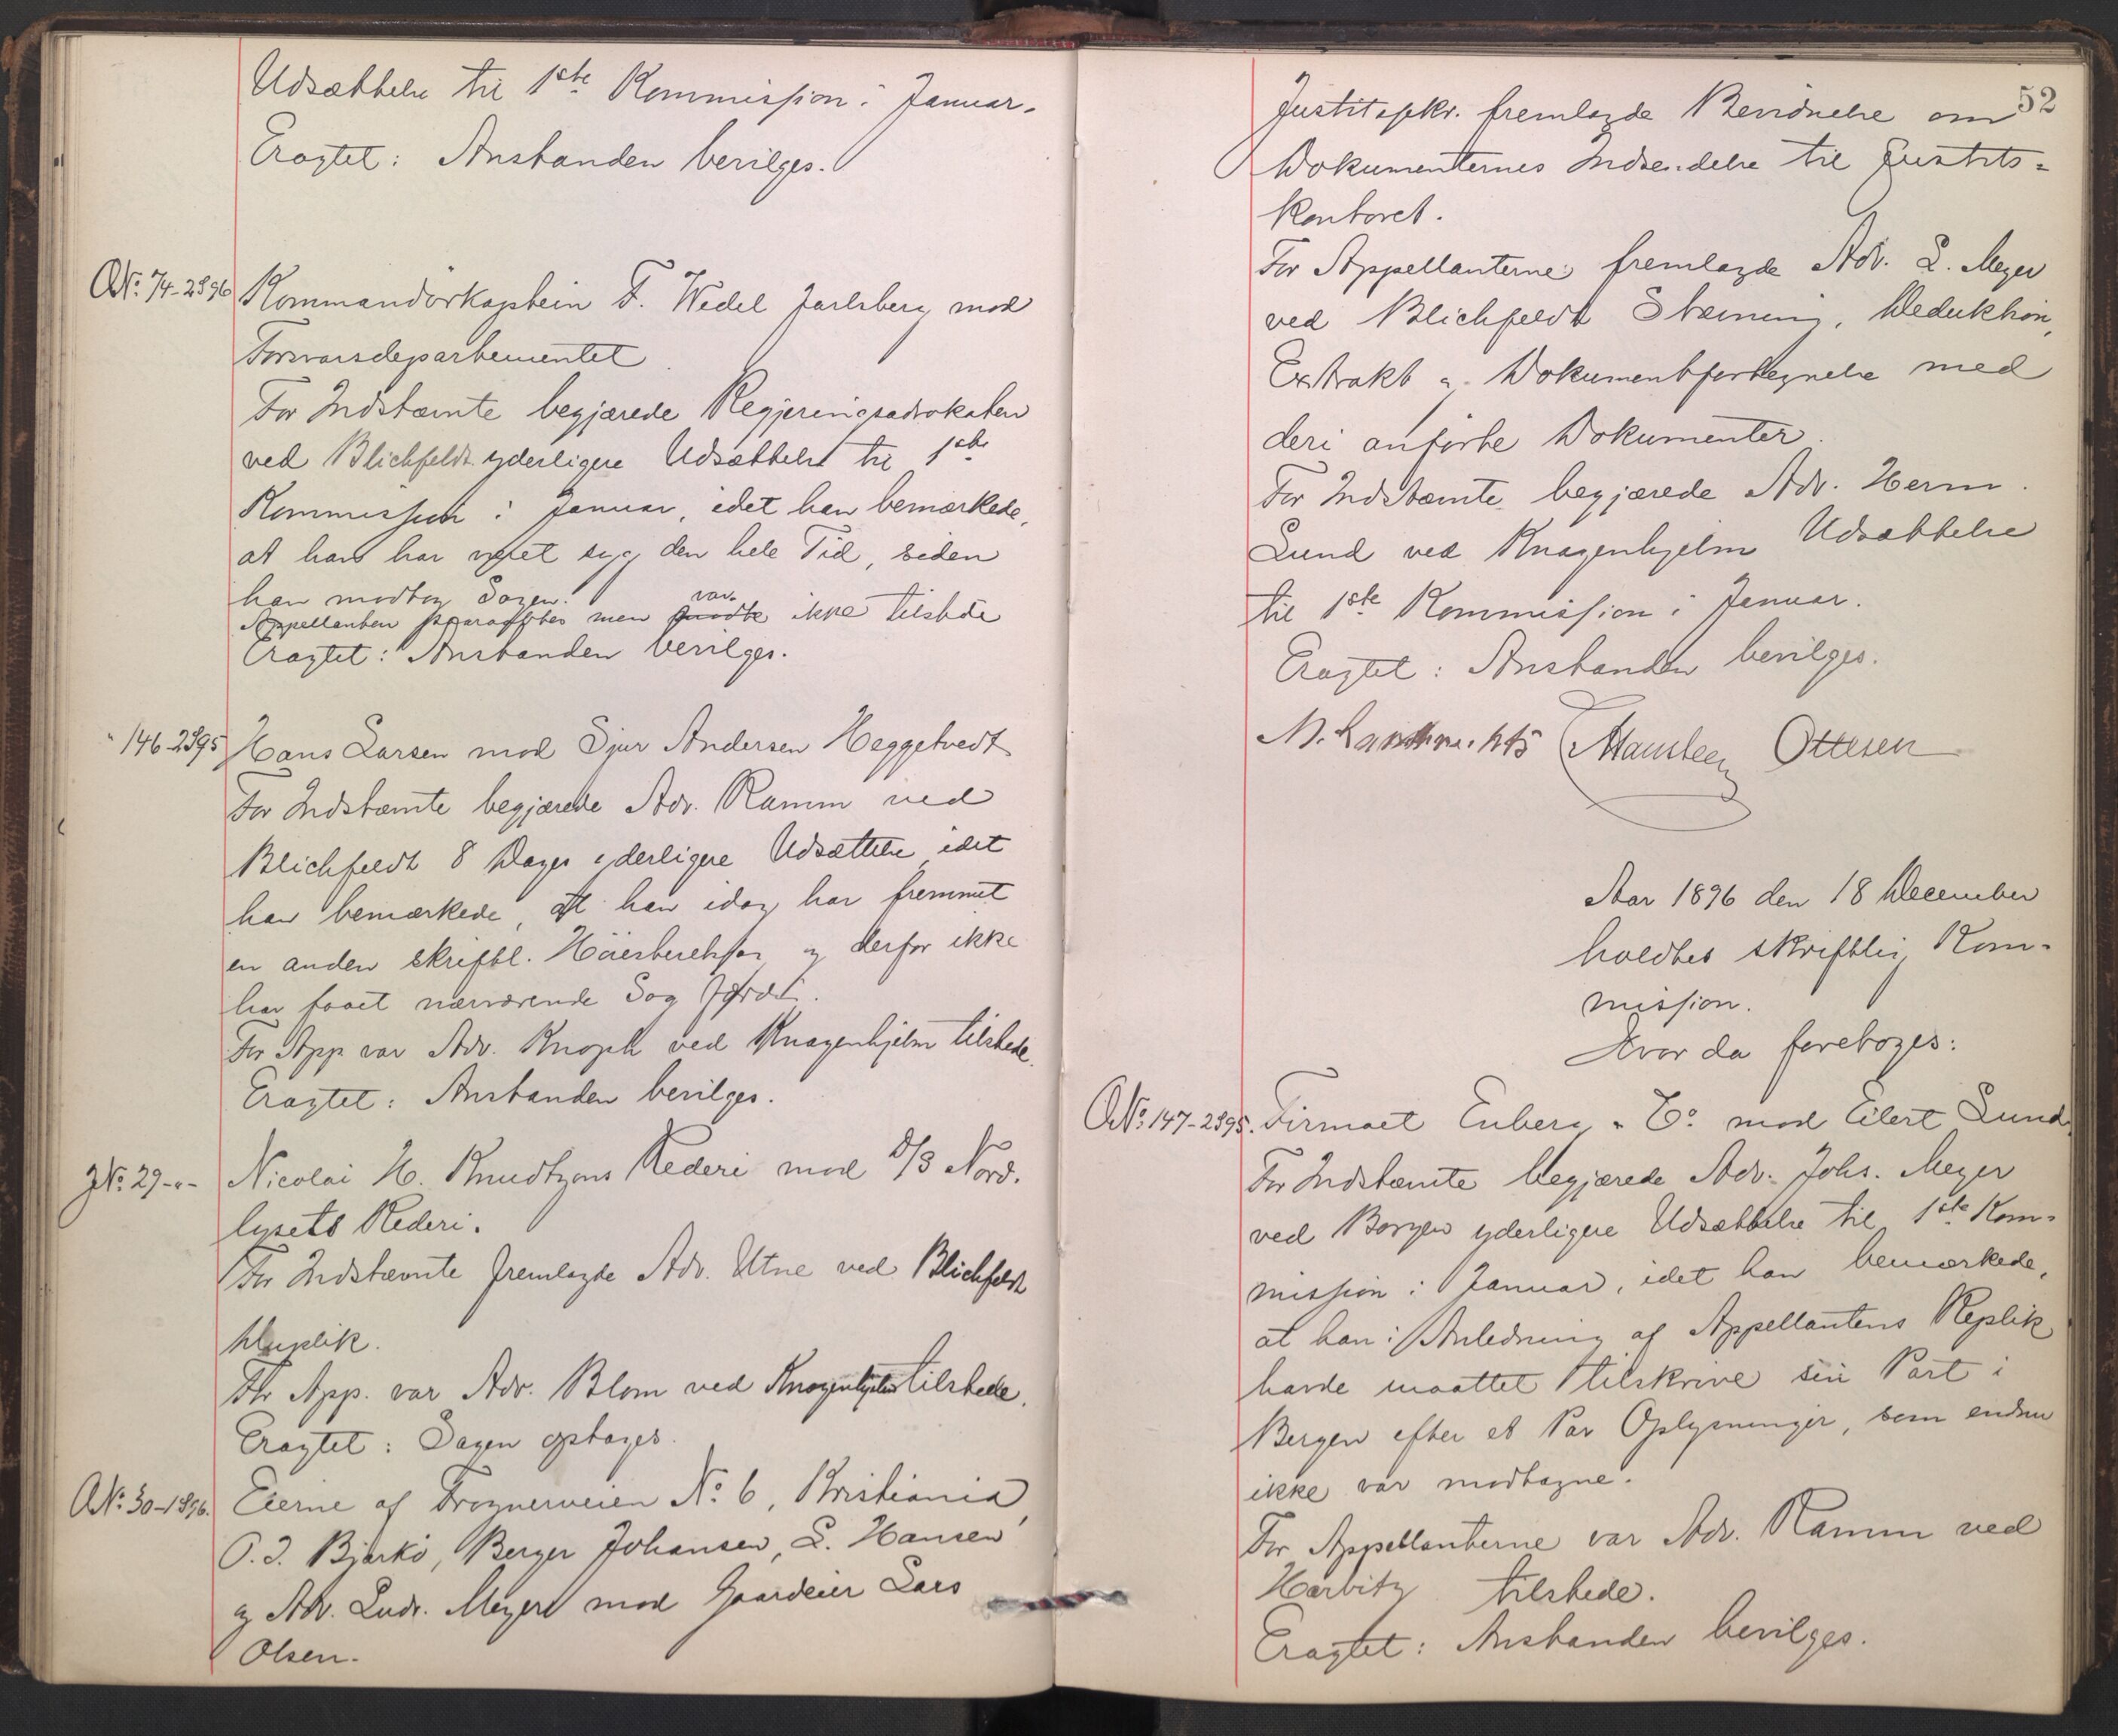 Udsættelse til 1ste Kommission i Januar.
Eragtet: Anstanden bevilges.
A No. 74-2 1896 Kommandörkaptein F. Wedel Jarlsberg mod
Forsvarsdepartementet
For Indstævnte begjærede Regjeringsadvokaten
ved Blichfeldt yderligere Udsættelse til 1ste
Kommission i Januar, idet han bemærkede,
at han har været syg den hele Tid, siden
han modtog Sagen.
Appellanten paaraabtes men var ikke tilstede
Eragtet: Anstanden bevilges.
" 146-2 1895 Hans Larsen mod Sjur Andersen Heggetvedt
For Indstævnte begjærede Adv. Ramm ved
Blichfeldt 8 Dages yderligere Udsættelse idet
han bemærkede, at han idag har fremmet
en anden skriftl. Höiesteretssag og derfor ikke
har faaet nærværende Sag færdi.
For App var Adv. Knoph ved Knagenhjelm tilstede.
Eragtet: Anstanden bevilges.
J No. 29 - " - Nicolai H. Knudtzons Rederi mod D/S Nord-
lysets Rederi.
For Indstævnte fremlagde Adv. Utne ved Blichfeldt
Duplik.
For App. var Adv. Blom ved Knagenhjelm tilstede.
Eragtet: Sagen optages.
A No. 30-1 1896. Eierne af Frognerveien No. 6, Kristiania,
O. J. Bjerkö, Berger Johansen, L. Hansen
og Adv. Ludv. Meyer mod Gaardeier Lars
Olsen.
52
Justitssekr. fremlagde Bevidnelse om
Dokumenternes Indsendelse til Justits-
kontoret.
For Appellanterne fremlagde Adv. L. Meyer
ved Blichfeldt Stævning, Deduktion,
Extrakt og Dokumentfortegnelse med
deri anførte Dokumenter.
For Indstævnte begjærede Adv. Herm.
Lund ved Knagenhjelm Udsættelse
til 1ste Kommission i Januar.
Eragtet: Anstanden bevilges.
Hansteen Ottesen
Aar 1896 den 18 December
holdtes skriftlig Kom-
mission.
Hvor da foretoges:
A No. 147-2 1895. Firmaet Enberg & Co. mod Eilert Lund
For Indstævnte begjærede Adv. Johs. Meyer
ved Borgen yderligere Udsættelse til 1ste Kom-
mission i Januar, idet han bemærkede,
at han i Anledning af Appellantens Replik
havde maattet tilskrive sin Part i
Bergen efter et Par Oplysninger, som endnu
ikke var modtagne.
For Appellanterne var Adv. Ramm ved
Harbitz tilstede.
Eragtet: Anstanden bevilges.